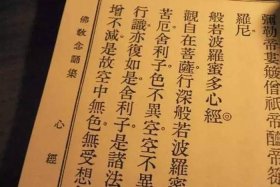 羅尼
般若波羅蜜多心經
觀自在菩薩。行深般若波羅蜜
苦厄。舍利子色不異空。空不異
行識亦復如是舍利子是諸法
增不減是故空中無色。無受想
佛敎念誦集 心經